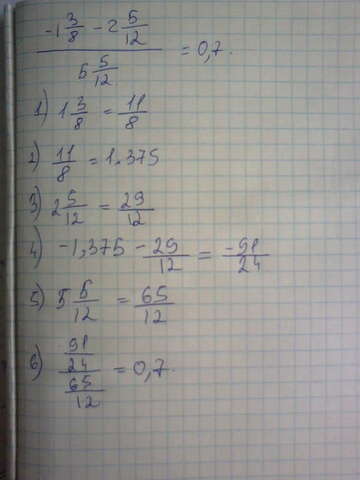 -1 3/8 - 2 5/12
———— = 0,7.
5 5/12
1) 1 3/8 = 11/8
2) 11/8 = 1.375
3) 2 5/12 = 29/12
4) -1,375 - 29/12 = -91/24
5) 5 5/12 = 65/12
6) 91/24 / 65/12 = 0,7.